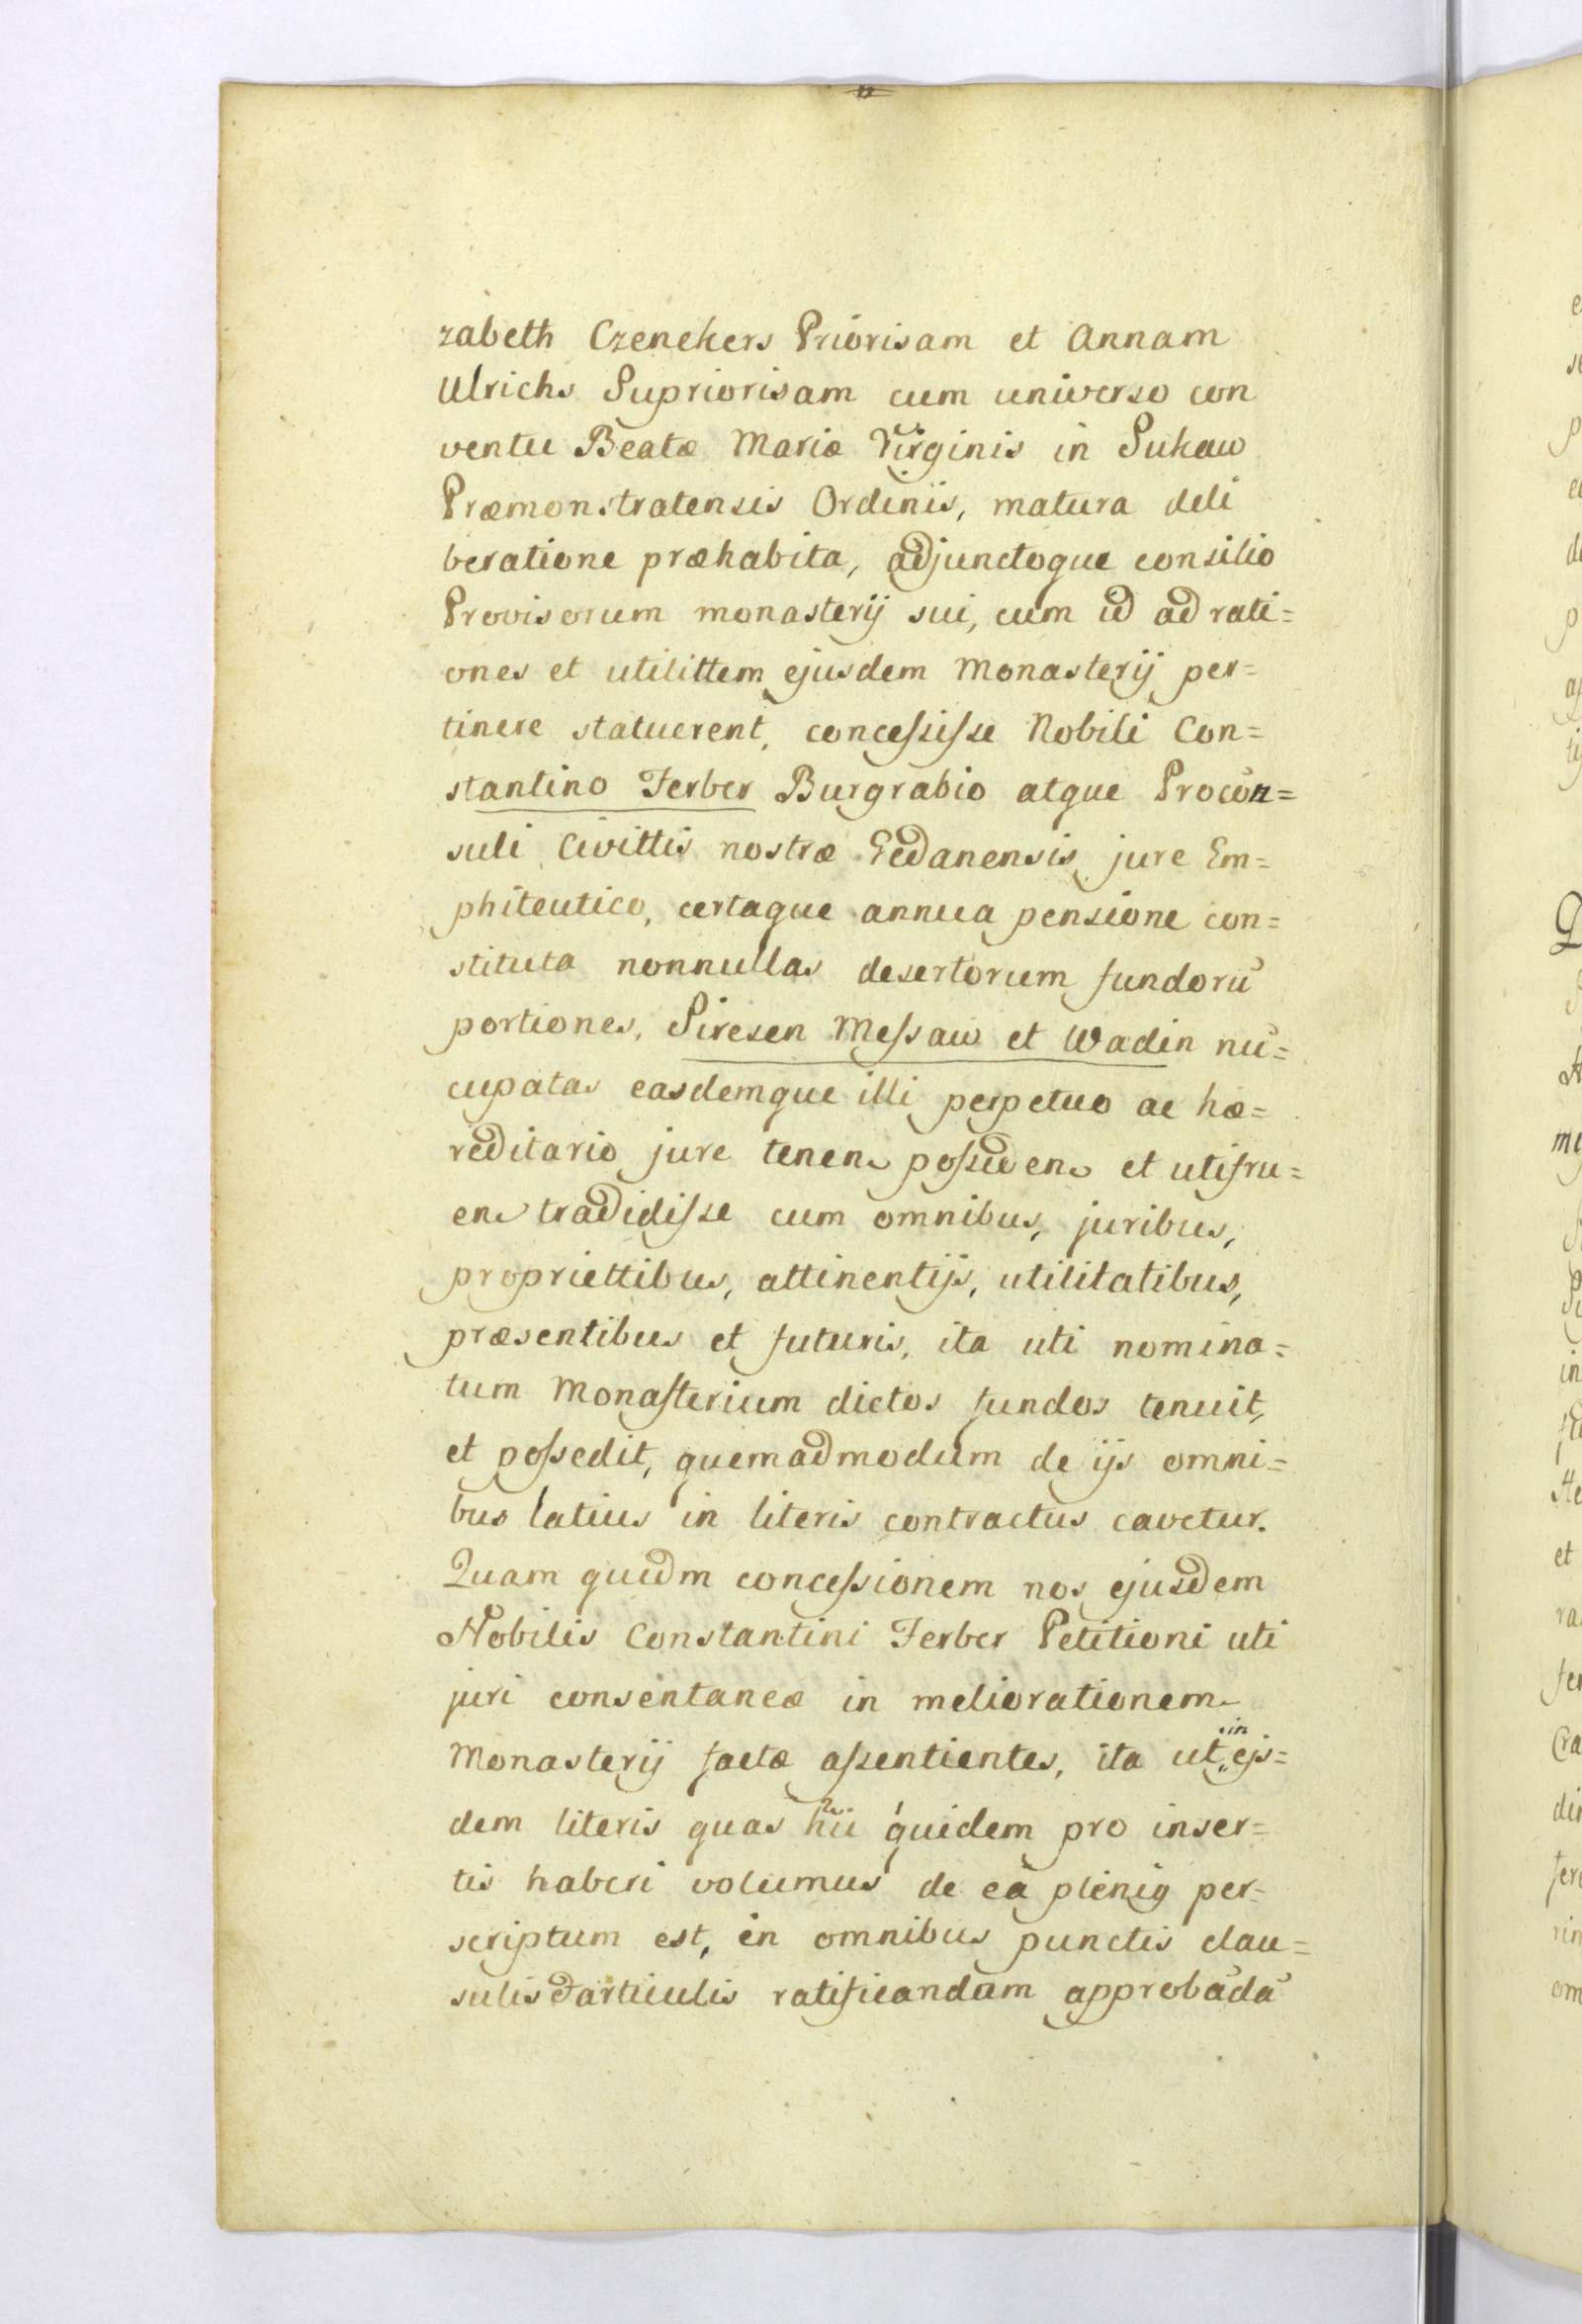 zabeth Czenekers Priorisam et Annam
Ulrichs Supriorisam cum universo con
ventu Beatæ Mariæ Virginis in Sukaw
Præmonstratensis Ordinis, matura deli
beratione præhabita, adjunctoque consilio
Provisorum monasterij sui, cum id ad rati=
ones et utilittem ejusdem Monasterij per=
tinere statuerent, concessisse Nobili Con=
stantino Ferber Burgrabio atque Procon=
suli Civittis nostræ Gedanensis jure Em=
phiteutico, certaque annua pensione con=
stituta nonnullas desertorum fundorū
portiones, Siresen Messaw et Wadin nū=
cupatas easdemque illi perpetuo ac hæ=
reditario jure tenen. possiden. et utifru=
en. tradidisse cum omnibus, juribus,
propriettibus, attinentijs, utilitatibus,
præsentibus et futuris, ita uti nomina=
tum Monasterium dictos fundos tenuit,
et possedit, quemadmodum de ijs omni=
bus latius in literis contractus cavetur.
Quam quidm concessionem nos ejusdem
Nobilis Constantini Ferber Petitioni uti
juri consentaneæ in meliorationem
Monasterij factæ assentientes, ita ut in ejs=
dem literis quas quidem pro inser=
tis haberi volumus de ea plenig per=
scriptum est, in omnibus punctis clau=
sulis articulis ratificandam approbādā